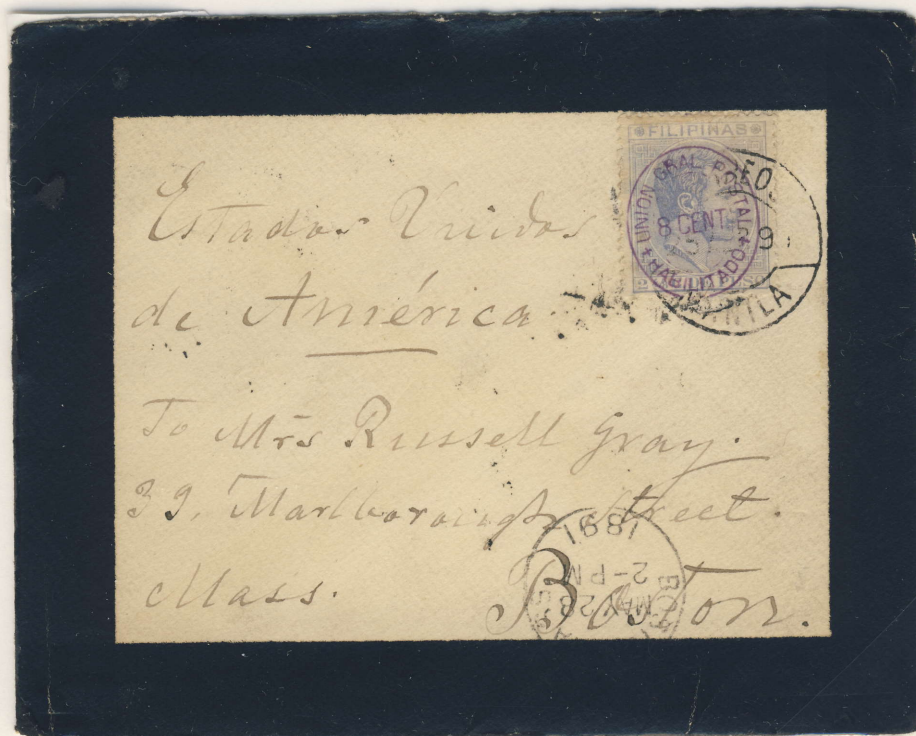 FILIPINAS
UNION GRAL POSTAL
8 CENT
HABILITADO
MANILA
Estados Unidos
de América
To Mrs Russell Gray.
39, Marlborough Street.
Mass. Boston.
1891
2-PM
MAY 28